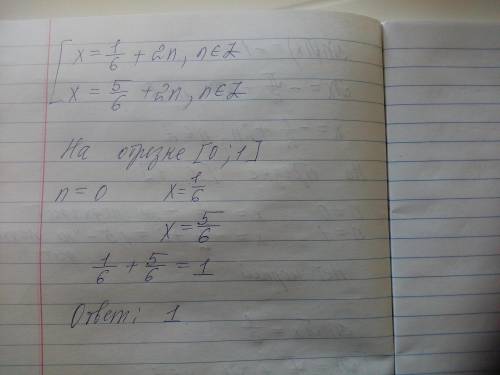 [ x = 1/6 + 2n, n∈Z
x = 5/6 + 2n, n∈Z
На отрезке [0;1]
n = 0 x = 1/6
x = 5/6
1/6 + 5/6 = 1
Ответ: 1